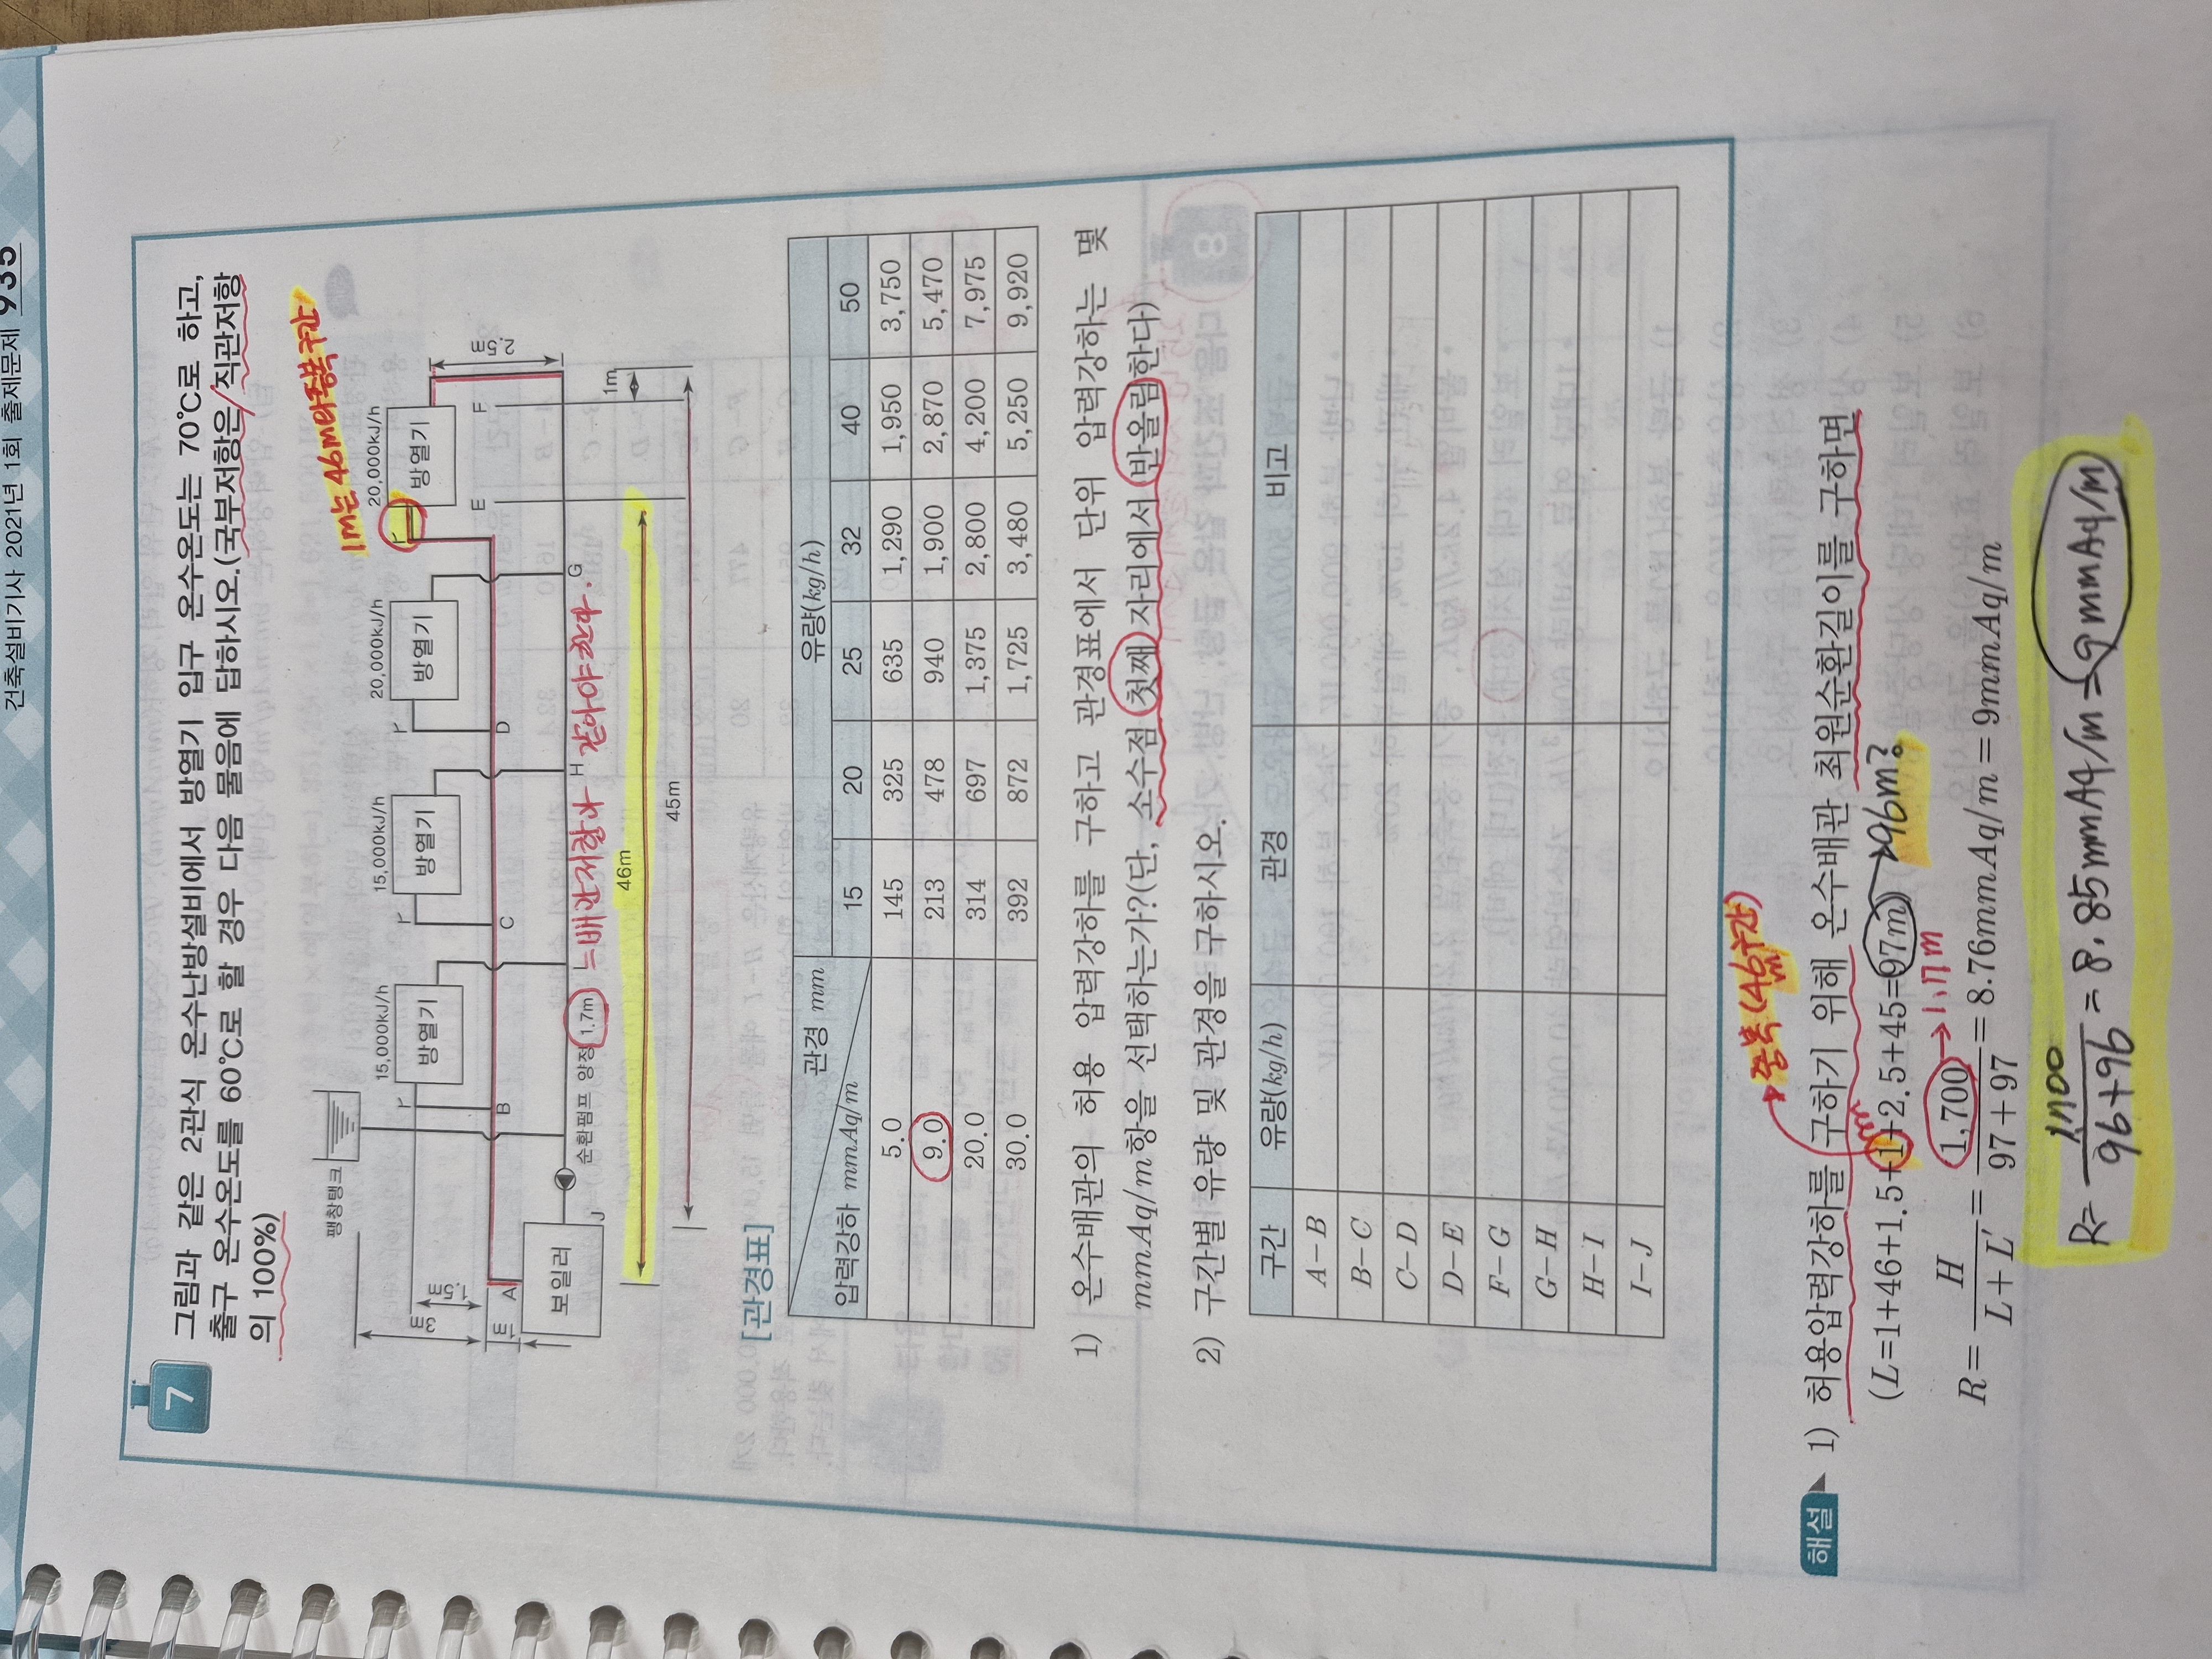 건축설비기사 2021년 1회 출제문제 935
7
그림과 같은 2관식 온수난방설비에서 방열기 입구 온수온도는 70℃로 하고,
출구 온수온도를 60℃로 할 경우 다음 물음에 답하시오.(국부저항은 직관저항
의 100%)
1m는 46m와 중복구간
팽창탱크
15,000kJ/h
15,000kJ/h
20,000kJ/h
20,000kJ/h
방열기
방열기
방열기
방열기
r
r
r
r
3m
1.5m
1m
2.5m
A
B
C
D
E
F
보일러
J
H
G
순환펌프 양정 1.7m
는 배관저항과 같아야 한다.
1m
46m
45m
[관경표]
관경 mm
압력강하 mmAq/m
유량(kg/h)
15 20 25 32 40 50
5.0 145 325 635 1,290 1,950 3,750
9.0 213 478 940 1,900 2,870 5,470
20.0 314 697 1,375 2,800 4,200 7,975
30.0 392 872 1,725 3,480 5,250 9,920
1) 온수배관의 허용 압력강하를 구하고 관경표에서 단위 압력강하는 몇
mmAq/m항을 선택하는가?(단, 소수점 첫째 자리에서 반올림한다)
2) 구간별 유량 및 관경을 구하시오.
구간 유량(kg/h) 관경 비고
A-B
B-C
C-D
D-E
F-G
G-H
H-I
I-J
중복(46m구간)
해설 1) 허용압력강하를 구하기 위해 온수배관 최원순환길이를 구하면
(L=1+46+1.5+1+2.5+45=97m)
→96m?
→1.7m
R= H / L+L′ = 1,700 / 97+97 = 8.76mmAq/m = 9mmAq/m
R= 1700 / 96+96 = 8.85mmAq/m = 9mmAq/m